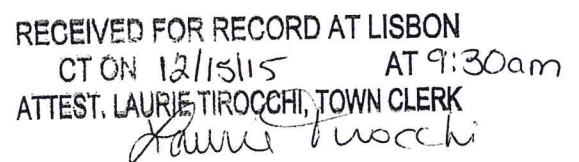 RECEIVED FOR RECORD AT LISBON
CT ON 12/15/15 AT 9:30am
ATTEST. LAURIE TIROCCHI, TOWN CLERK
Laurie Tirocchi